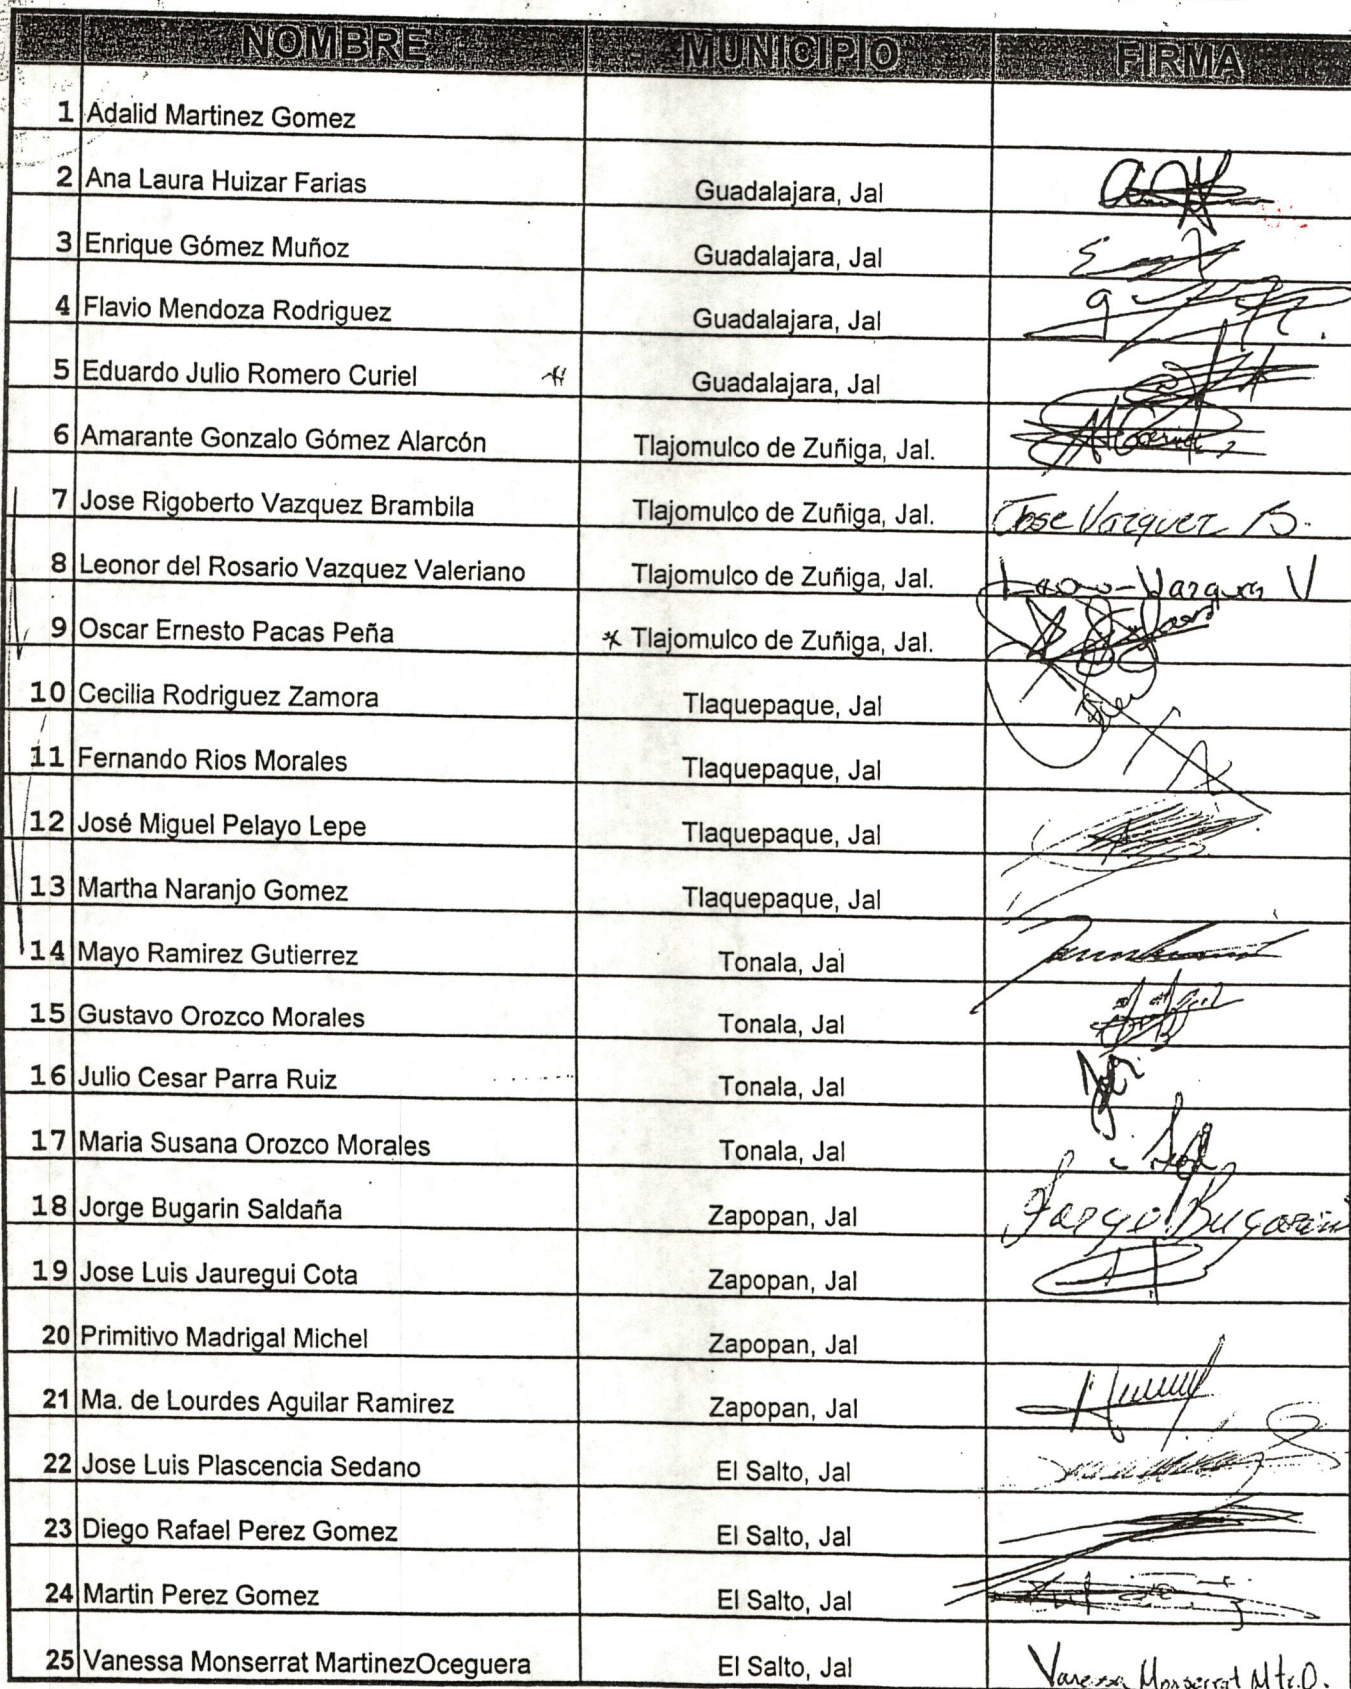 NOMBRE MUNICIPIO FIRMA
1 Adalid Martinez Gomez
2 Ana Laura Huizar Farias Guadalajara, Jal
3 Enrique Gómez Muñoz Guadalajara, Jal
4 Flavio Mendoza Rodriguez Guadalajara, Jal
5 Eduardo Julio Romero Curiel Guadalajara, Jal
6 Amarante Gonzalo Gómez Alarcón Tlajomulco de Zuñiga, Jal.
7 Jose Rigoberto Vazquez Brambila Tlajomulco de Zuñiga, Jal. Jose Vazquez B.
8 Leonor del Rosario Vazquez Valeriano Tlajomulco de Zuñiga, Jal.
9 Oscar Ernesto Pacas Peña Tlajomulco de Zuñiga, Jal.
10 Cecilia Rodriguez Zamora Tlaquepaque, Jal
11 Fernando Rios Morales Tlaquepaque, Jal
12 José Miguel Pelayo Lepe Tlaquepaque, Jal
13 Martha Naranjo Gomez Tlaquepaque, Jal
14 Mayo Ramirez Gutierrez Tonala, Jal
15 Gustavo Orozco Morales Tonala, Jal
16 Julio Cesar Parra Ruiz Tonala, Jal
17 Maria Susana Orozco Morales Tonala, Jal
18 Jorge Bugarin Saldaña Zapopan, Jal Jorge Bugarin
19 Jose Luis Jauregui Cota Zapopan, Jal
20 Primitivo Madrigal Michel Zapopan, Jal
21 Ma. de Lourdes Aguilar Ramirez Zapopan, Jal
22 Jose Luis Plascencia Sedano El Salto, Jal
23 Diego Rafael Perez Gomez El Salto, Jal
24 Martin Perez Gomez El Salto, Jal
25 Vanessa Monserrat MartinezOceguera El Salto, Jal Vanessa Monserrat Mtz.O.